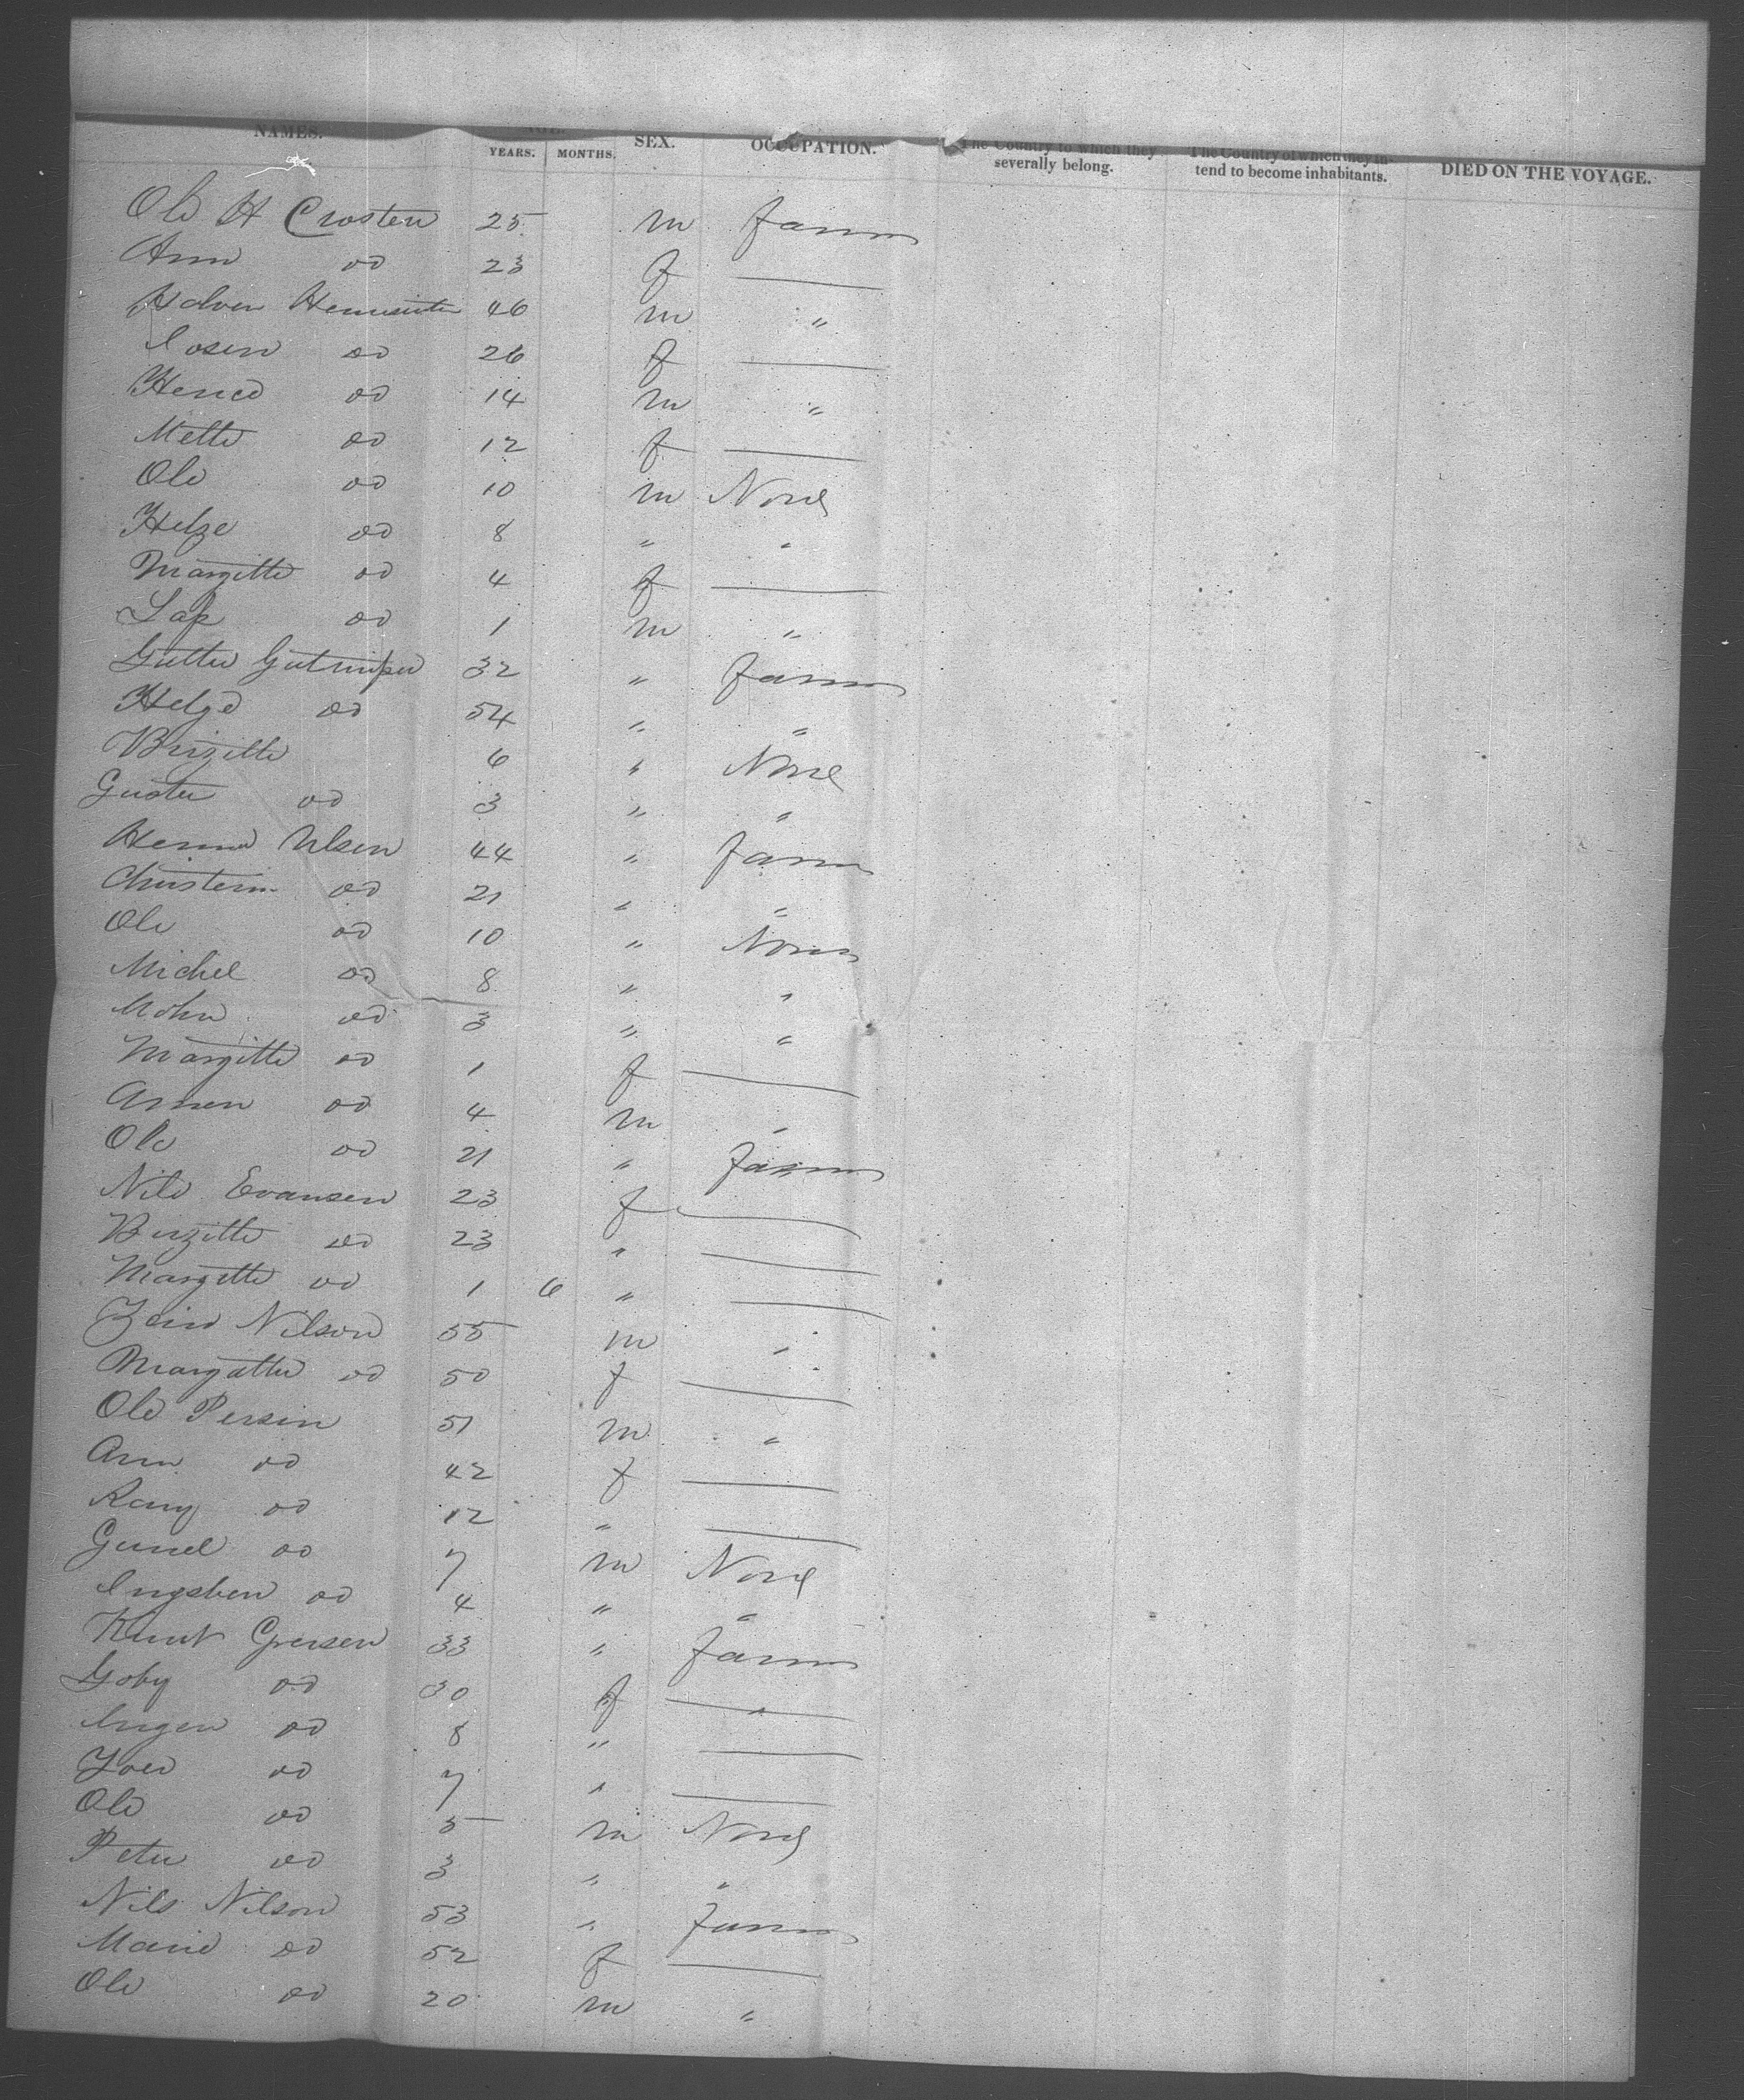 NAMES. AGE. YEARS. MONTHS. SEX. OCCUPATION. The Country to which they severally belong. The Country of which they intend to become inhabitants. DIED ON THE VOYAGE.
Ole H Crosten 25 m Farmer
Ann do 23 f —
Halven 46 m "
do 26 f —
do 14 m "
Mette do 12 f —
Ole do 10 m None
Helge do 8 " "
Margitte do 4 f —
do 1 m "
32 " Farmer
Helge do 54 " "
Birgitte 6 " None
Guster do 3 " "
Olsen 44 " Farmer
Christern do 21 " "
Ole do 10 " None
Michel do 8 " "
John do 3 " "
Margitte do 1 f —
Arnen do 4 m "
Ole do 21 " Farmer
Nils Evansen 23 f —
Birgitte do 23 " —
Margitte do 1 6 " —
Nilson 55 m "
Margatte do 50 f —
Ole Persen 51 m "
Ann do 42 f —
Rang do 12 " —
Gunel do 7 m None
Ingeben do 4 " "
Knut 33 " Farmer
Goby do 30 f —
Ingen do 8 " —
do 7 " —
Ole do 5 m None
Peter do 3 " "
Nils Nilson 53 " Farmer
Marie do 52 f —
Ole do 20 m "